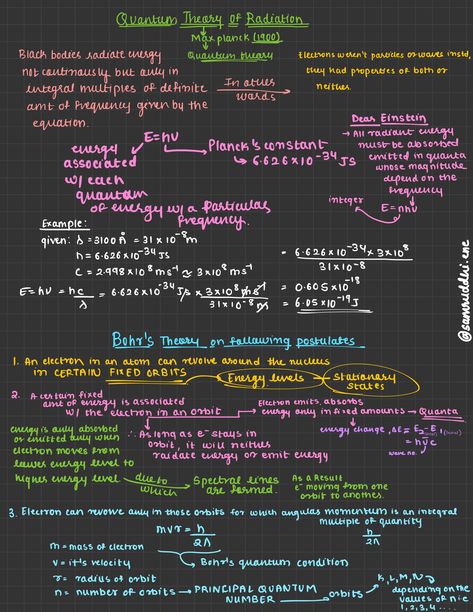 Quantum Theory of Radiation
Max planck (1900)
Quantum theory
Black bodies radiate energy
not continously but only in
integral multiples of definite
amt of frequency given by the
equation.
In other
words
Electrons weren't particles or waves instd,
they had properties of both or
neither.
E=hν
energy
associated
w/ each
quantum
of energy w/ a particular
frequency.
Planck's constant
↳ 6.626×10⁻³⁴ JS
Dear Einstein
→ All radiant energy
must be absorbed
emitted in quanta
whose magnitude
depend on the
frequency
integer
E=nhν
Example:
given: λ=3100 Å = 31×10⁻⁸m
h = 6.626×10⁻³⁴JS
C = 2.998×10⁸ms⁻¹ ≈ 3×10⁸ms⁻¹
E=hν = hc/λ = 6.626×10⁻³⁴J/s × 3×10⁸ms⁻¹ / 31×10⁻⁸m
= 6.626×10⁻³⁴×3×10⁸ / 31×10⁻⁸
= 0.605×10⁻¹⁸
= 6.05×10⁻¹⁹J
@samruddhi.ene
Bohr's Theory on following postulates
1. An electron in an atom can revolve around the nucleus
in CERTAIN FIXED ORBITS
Energy levels
Stationary
States
2. A certain fixed
amt of energy is associated
w/ the electron in an orbit
Electron emits, absorbs
energy only in fixed amounts → Quanta
energy is only absorbed
or emitted only when
electron moves from
lower energy level to
higher energy level
∴ As long as e⁻ stays in
orbit, it will neither
raidate energy or emit energy
energy change, ΔE = E₂-E₁
= hν̄c
wave no.
due to
which
Spectral lines
are formed.
As a Result
e⁻ moving from one
orbit to another.
3. Electron can revolve only in those orbits for which angular momentum is an integral
multiple of quantity
h/2Λ
mvr = h/2Λ
m = mass of electron
v = it's velocity
r = radius of orbit
n = number of orbits → PRINCIPAL QUANTUM
NUMBER
Bohr's quantum condition
orbits
K, L, M, N
depending on the
values of n i.e
1, 2, 3, 4 ....